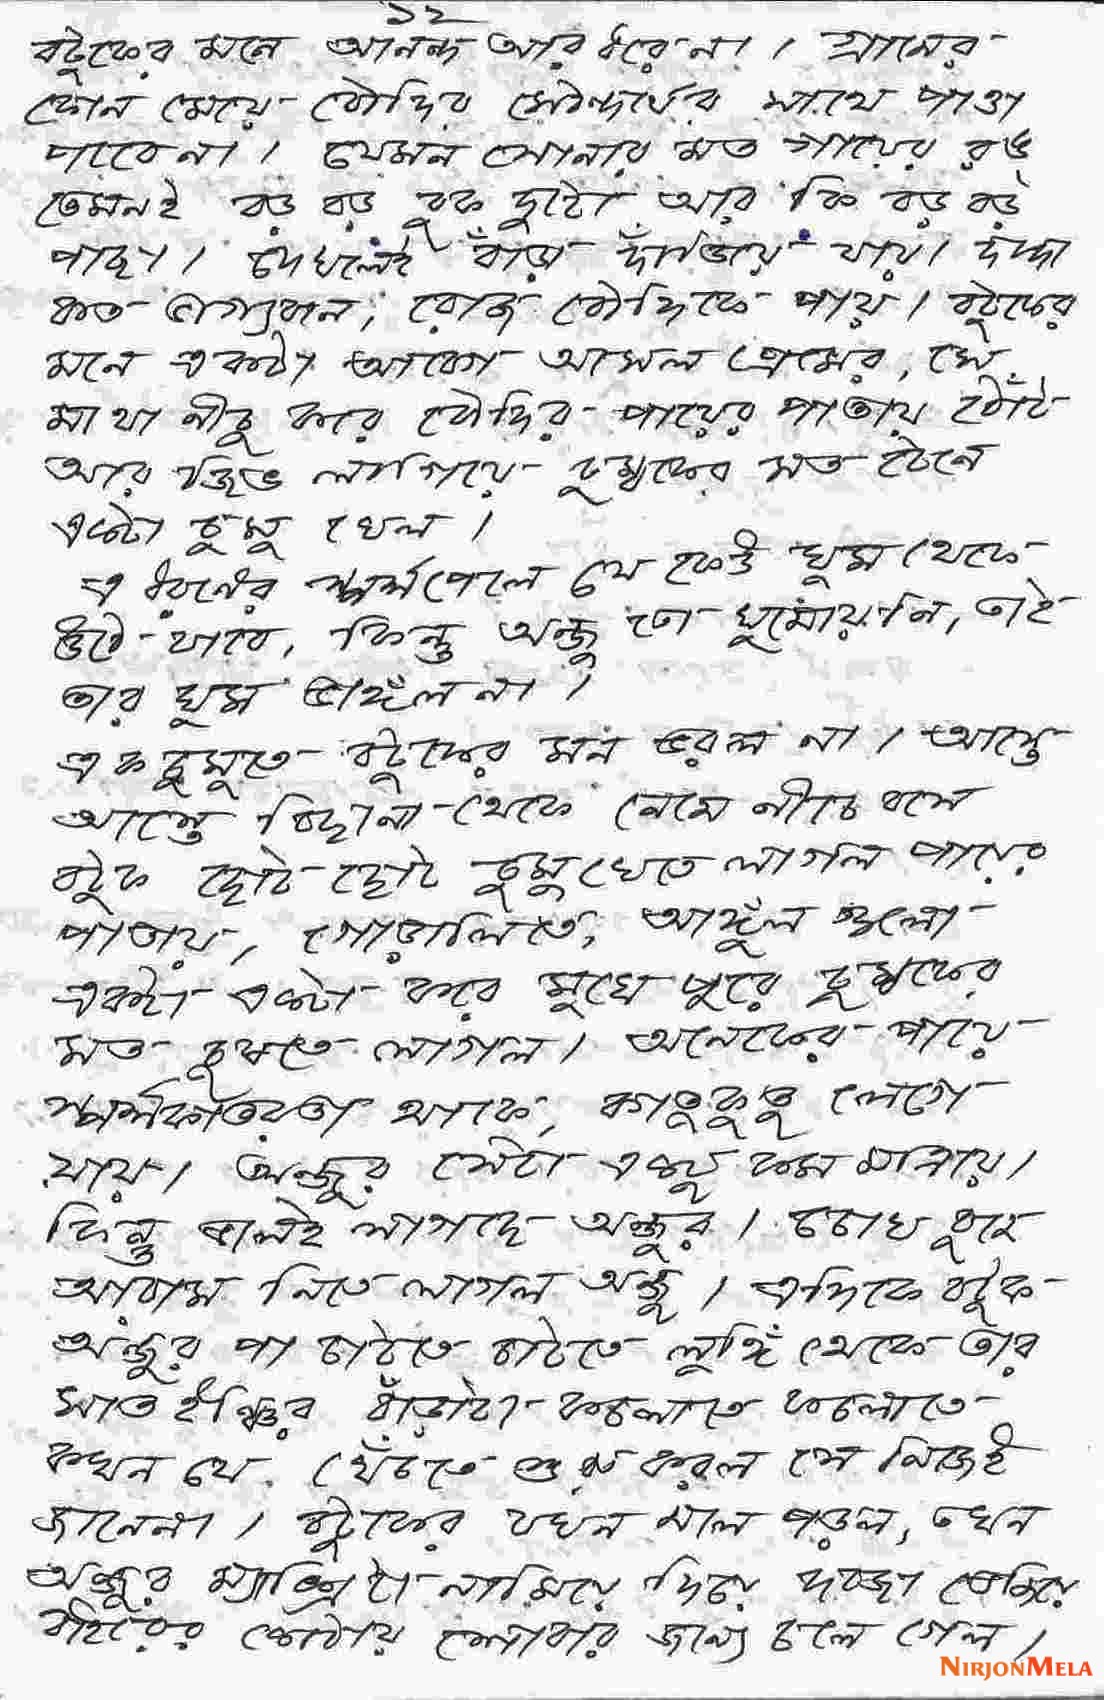 ১২
বটুকের মনে আনন্দ আর ধরে না। গ্রামের
কোন মেয়ে বৌদির সৌন্দর্যের সাথে পাত্তা
পাবে না। যেমন সোনার মত গায়ের রঙ
তেমনই বড় বড় বুক দুটো আর কি বড় বড়
পাছা। দেখলেই বাঁড়া দাঁড়িয়ে যায়। দাদা
কত ভাগ্যবান, রোজ বৌদিকে পায়। বটুকের
মনে একটা আবেগ আসল প্রেমের, সে
মাথা নীচু করে বৌদির পায়ের পাতায় ঠোঁট
আর জিভ লাগিয়ে চুম্বকের মত টেনে
একটা চুমু খেল।
এ ধরনের স্পর্শ পেলে যে কেউ ঘুম থেকে
উঠে যাবে, কিন্তু অঞ্জু তো ঘুমোয়নি, তাই
তার ঘুম ভাঙ্গঁল না।
এক চুমুতে বটুকের মন ভরল না। আস্তে
আস্তে বিছানা থেকে নেমে নীচে বসে
বটুক ছোট ছোট চুমু খেতে লাগল পায়ের
পাতায়, গোড়ালিতে, আঙ্গুঁল গুলো
একটা একটা করে মুখে পুরে চুম্বকের
মত চুষতে লাগল। অনেকের পায়ে
স্পর্শকাতরতা থাকে, কাতুকুতু লেগে
যায়। অঞ্জুর সেটা একটু কম মাত্রায়।
কিন্তু ভালই লাগছে অঞ্জুর। চোখ বুজে
আরাম নিতে লাগল অঞ্জু। এদিকে বটুক
অঞ্জুর পা চাটতে চাটতে লুঙ্গিঁ থেকে তার
সাত ইঞ্চির বাঁড়াটা কচলাতে কচলাতে
কখন যে খেঁচতে শুরু করল সে নিজেই
জানেনা। বটুকের যখন মাল পড়ল, তখন
অঞ্জুর ম্যাক্সিটা নামিয়ে দিয়ে দরজা ভেজিয়ে
বাইরের কোঠায় শোবার জন্যে চলে গেল।
NIRJONMELA